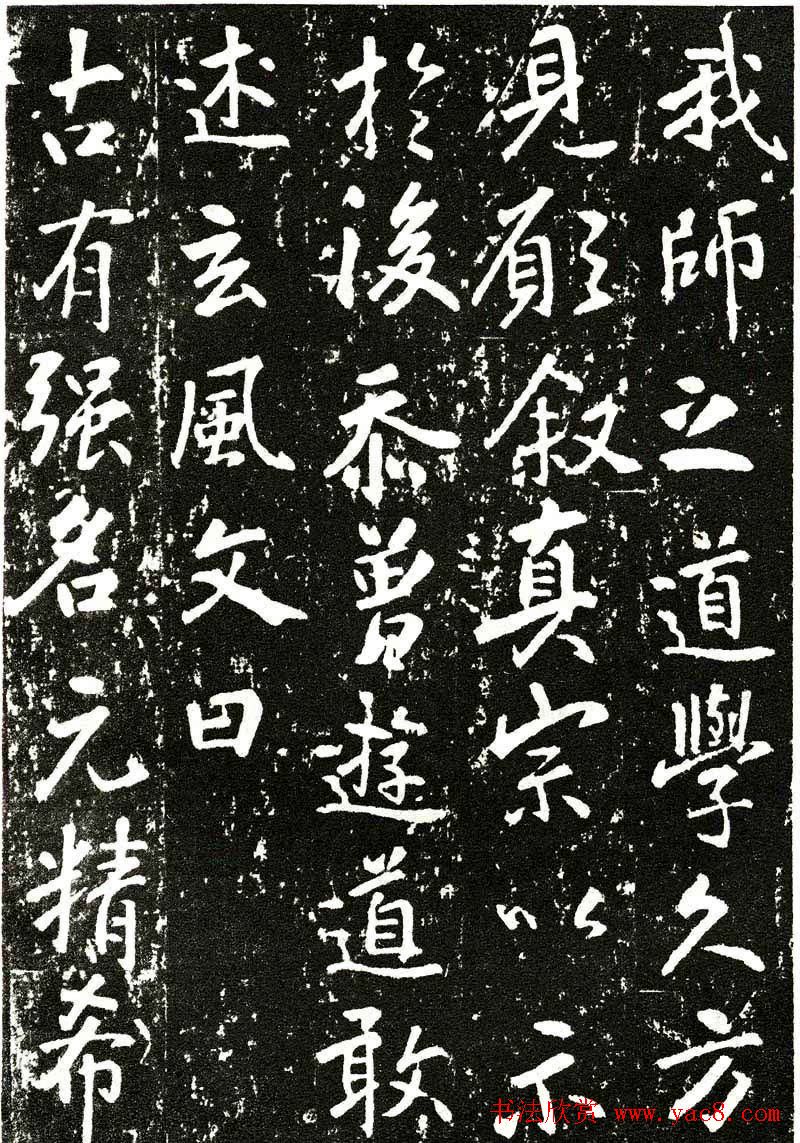 我師之道學久方
見願叙真宗以示
於後忝曽遊道敢
述玄風文曰
古有强名元精希
书法欣赏 www.yac8.com